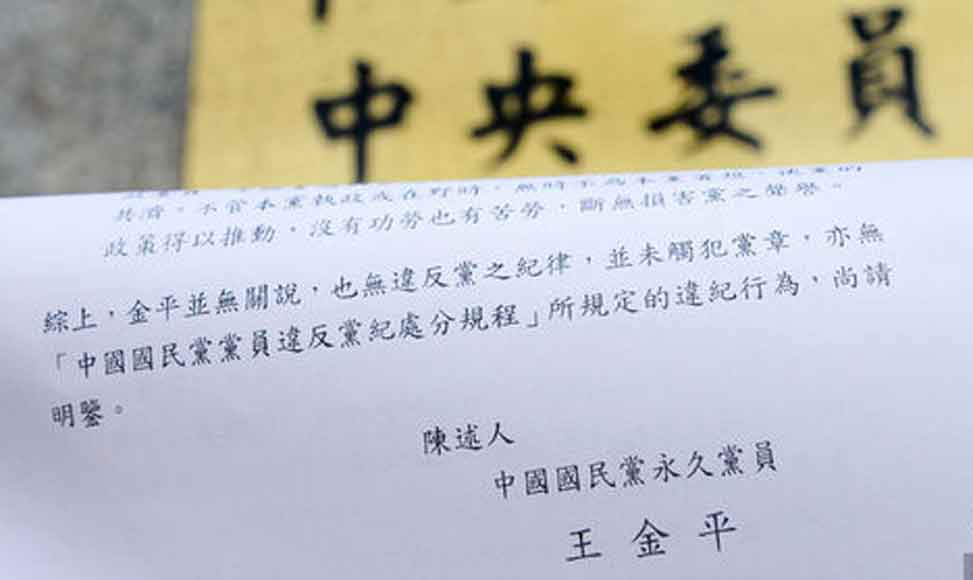 中央委員
共濟。不管本黨執政或在野時，無時不為本黨
政策得以推動，沒有功勞也有苦勞，斷無損害黨之聲譽。
綜上，金平並無關說，也無違反黨之紀律，並未觸犯黨章，亦無
「中國國民黨黨員違反黨紀處分規程」所規定的違紀行為，尚請
明鑒。
陳述人
中國國民黨永久黨員
王金平